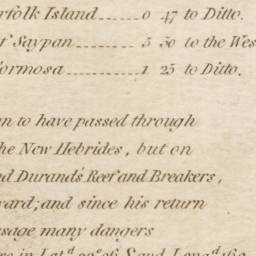 rfolk Island........0 47 to Ditto.
f Saypan........5 50 to the Wes
ormosa..........1 25 to Ditto.
n to have passed through
he New Hebrides, but on
nd Durand's Reef and Breakers,
vard; and since his return
sage many dangers